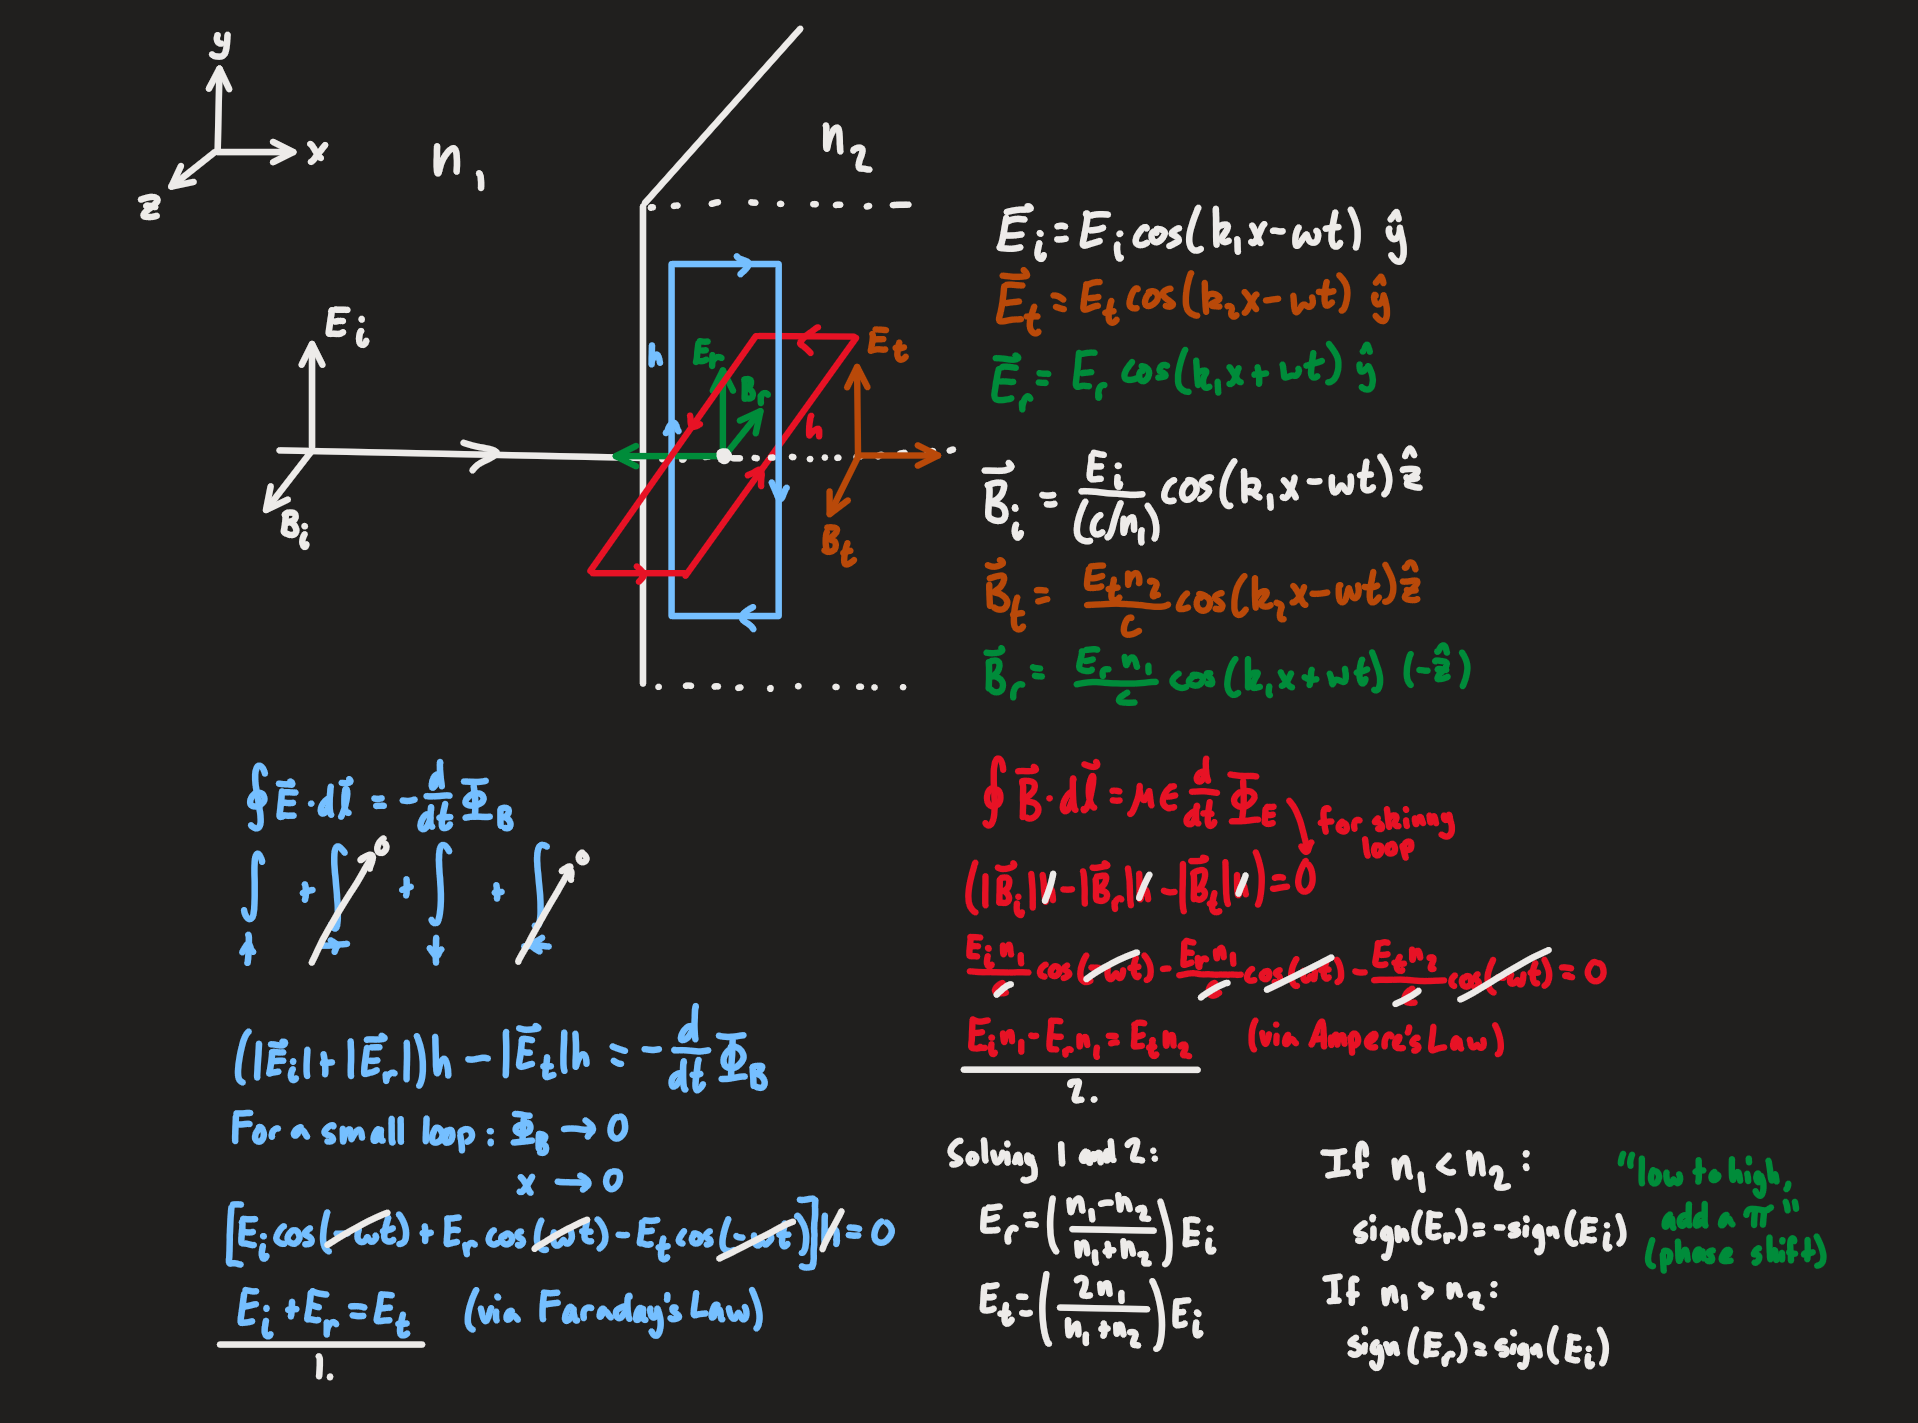 y
x
z
n₁
n₂
E_i
B_i
h
E_r
B_r
h
E_t
B_t
E⃗_i = E_i cos(k₁x-ωt) ŷ
E⃗_t = E_t cos(k₂x-ωt) ŷ
E⃗_r = E_r cos(k₁x+ωt) ŷ
B⃗_i = E_i/(c/n₁) cos(k₁x-ωt) ẑ
B⃗_t = E_t n₂/c cos(k₂x-ωt) ẑ
B⃗_r = E_r n₁/c cos(k₁x+ωt) (-ẑ)
∮ E⃗·dl⃗ = - d/dt Φ_B
∫ + ∫ 0 + ∫ + ∫ 0
↑ → ↓ ←
(|E⃗_i|+|E⃗_r|)h - |E⃗_t|h = - d/dt Φ_B
For a small loop: Φ_B → 0
x → 0
[E_i cos(-ωt) + E_r cos(ωt) - E_t cos(-ωt)]h = 0
E_i + E_r = E_t (via Faraday's Law)
1.
∮ B⃗·dl⃗ = με d/dt Φ_E
for skinny
loop
(|B⃗_i|h - |B⃗_r|h - |B⃗_t|h) = 0
E_i n₁/c cos(-ωt) - E_r n₁/c cos(ωt) - E_t n₂/c cos(-ωt) = 0
E_i n₁ - E_r n₁ = E_t n₂ (via Ampere's Law)
2.
Solving 1 and 2:
E_r = ((n₁-n₂)/(n₁+n₂)) E_i
E_t = (2n₁/(n₁+n₂)) E_i
If n₁ < n₂:
sign(E_r) = -sign(E_i)
If n₁ > n₂:
sign(E_r) = sign(E_i)
"low to high,
add a π"
(phase shift)